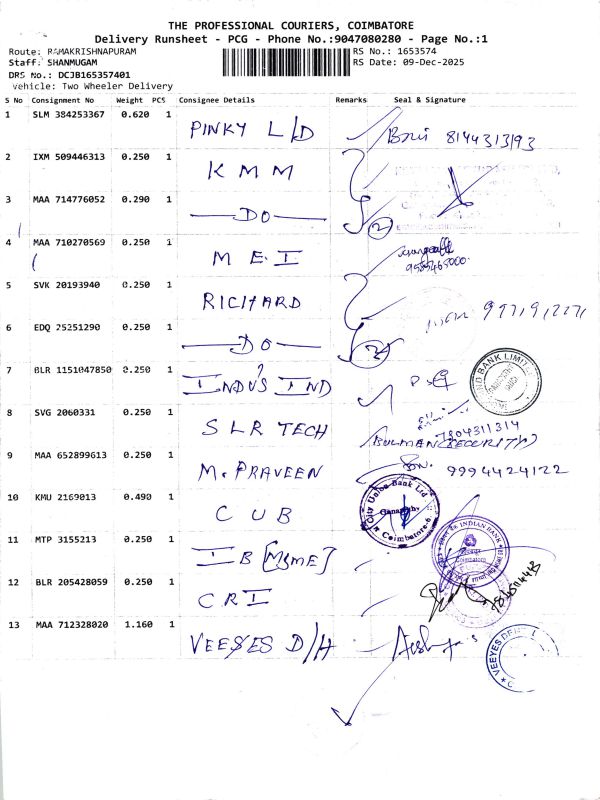 THE PROFESSIONAL COURIERS, COIMBATORE
Delivery Runsheet - PCG - Phone No.:9047080280 - Page No.:1
Route: RAMAKRISHNAPURAM
RS No.: 1653574
Staff: SHANMUGAM
RS Date: 09-Dec-2025
DRS No.: DCJB165357401
Vehicle: Two Wheeler Delivery
S No Consignment No Weight PCS Consignee Details Remarks Seal & Signature
1 SLM 384253367 0.620 1 PINKY L/D 8144313193
2 IXM 509446313 0.250 1 KMM
3 MAA 714776052 0.290 1 —DO— 2
4 MAA 710270569 0.250 1 MEI
5 SVK 20193940 0.250 1 RICHARD
6 EDQ 25251290 0.250 1 —DO— 2
7 BLR 1151047850 0.250 1 INDUS IND
BANK LIMITED
8 SVG 2060331 0.250 1 SLR TECH
7804311314
(SECURITY)
9 MAA 652899613 0.250 1 M. PRAVEEN 9994424122
10 KMU 2169013 0.490 1 CUB City Union Bank Ltd
Coimbatore-6
11 MTP 3155213 0.250 1 IB [MSME] INDIAN BANK
Coimbatore
12 BLR 205428059 0.250 1 CRI
13 MAA 712328020 1.160 1 VEEYES D/H VEEYES